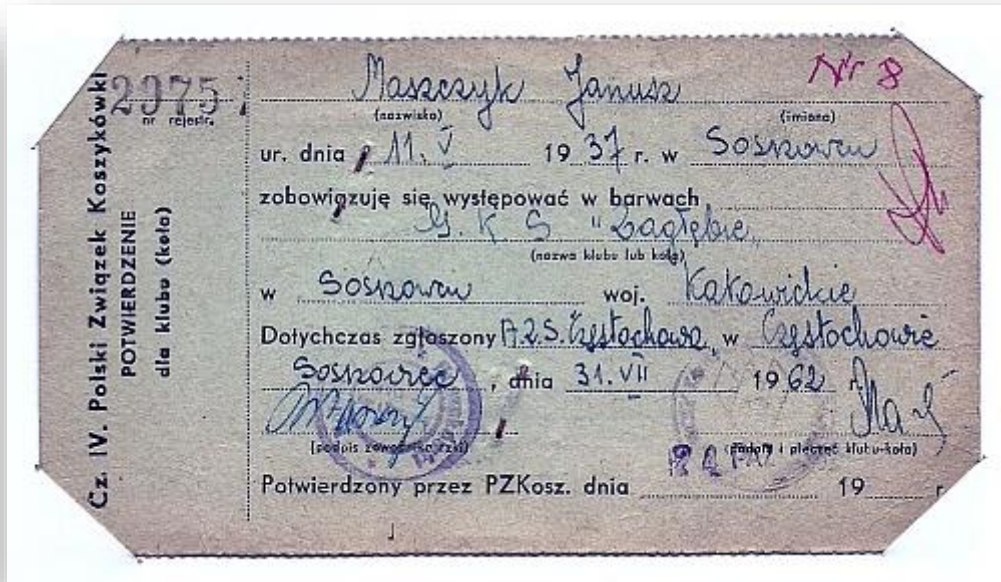 Cz. IV. Polski Związek Koszykówki
POTWIERDZENIE
dla klubu (koła)
20757
nr rejestr.
Nr 8
Maszczyk Janusz
(nazwisko) (imiona)
ur. dnia 11. V 1937 r. w Sosnowcu
zobowiązuję się występować w barwach
G. K S "Zagłębie"
(nazwa klubu lub koła)
w Sosnowcu woj. Katowickie
Dotychczas zgłoszony A.Z.S. Częstochowa w Częstochowie
Sosnowiec, dnia 31. VII 1962 r.
(podpis zawodnika-czki) (podpis i pieczęć klubu-koła)
Potwierdzony przez PZKosz. dnia 19 r